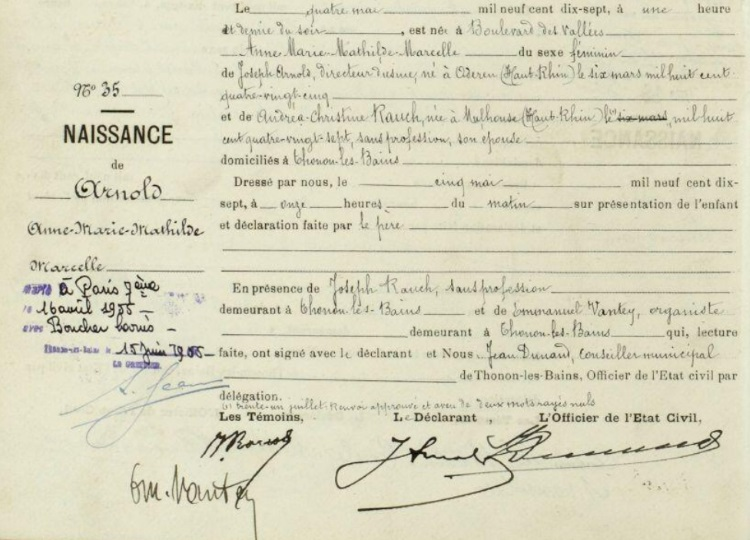 Le quatre mai mil neuf cent dix-sept, à une heure
et demie du soir, est née à Boulevard des Vallées
Anne-Marie-Mathilde-Marcelle du sexe féminin
de Joseph Arnold, directeur d'usine, né à Oderen (Haut-Rhin) le six mars mil huit cent
quatre-vingt-cinq
et de Andréa-Christine Rauch, née à Mulhouse (Haut-Rhin) le six mars, mil huit
cent quatre-vingt-sept, sans profession, son épouse
domiciliés à Thonon-les-Bains
Dressé par nous, le cinq mai mil neuf cent dix-
sept, à onze heures du matin sur présentation de l'enfant
et déclaration faite par le père
En présence de Joseph Rauch, sans profession
demeurant à Thonon-les-Bains et de Emmanuel Vantey, organiste
demeurant à Thonon-les-Bains qui, lecture
faite, ont signé avec le déclarant et Nous Jean Dunand, conseiller municipal
de Thonon-les-Bains, Officier de l'Etat civil par
délégation.
(1) trente-un juillet. Renvoi approuvé et aveu de deux mots rayés nuls
Les Témoins, Le Déclarant, L'Officier de l'Etat Civil,
J Arnold
Em. Vantey
N° 35
NAISSANCE
de
Arnold
Anne-Marie-Mathilde
Marcelle
à Paris 7ème
16 avril 1955
avec Boucher
15 Juin 1955